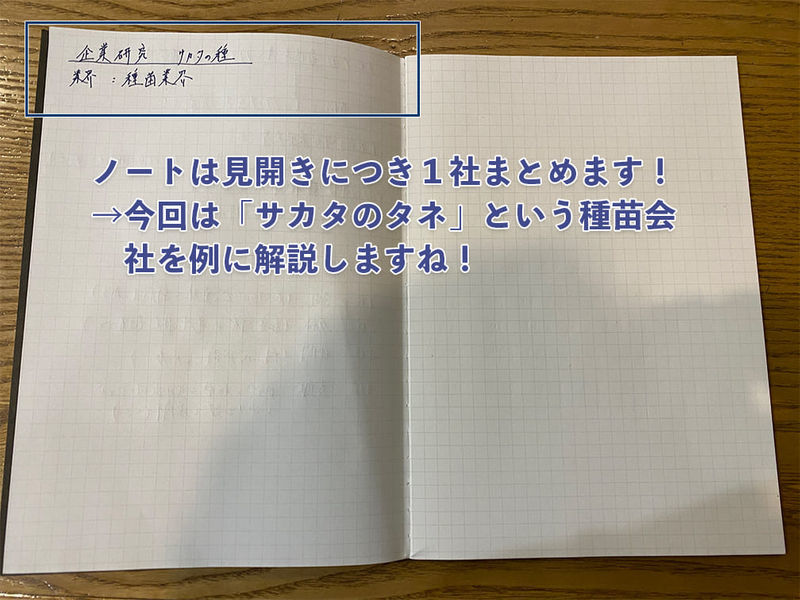 企業研究 サカタの種
業界：種苗業界
ノートは見開きにつき１社まとめます！
→今回は「サカタのタネ」という種苗会
社を例に解説しますね！